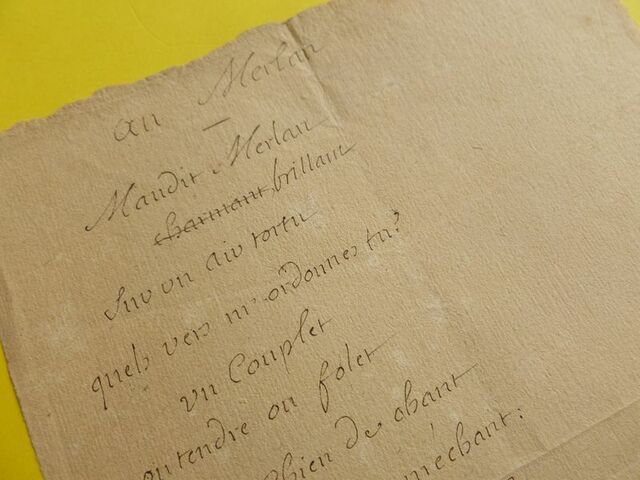 au Merlan
Maudit Merlan
charmant, brillant
Sur un air tortu
quels vers m'ordonnes tu?
un Couplet
ou tendre ou folet
chien de chant
méchant: